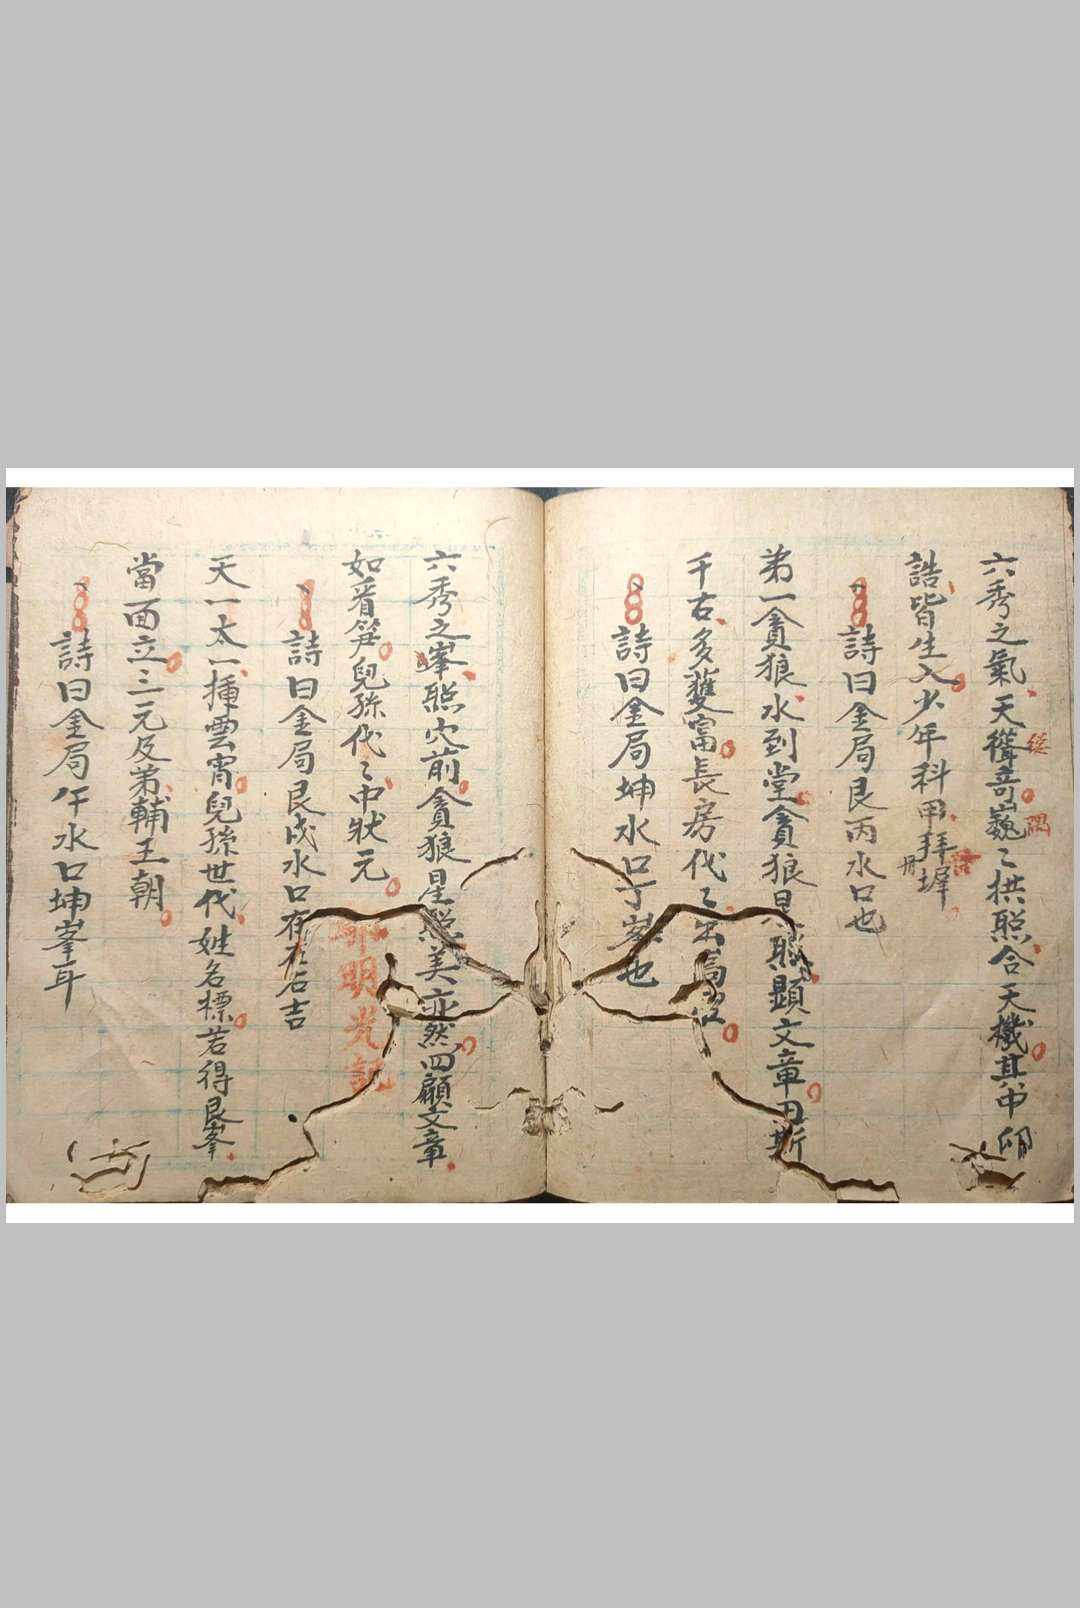 六秀之氣天聳竒巍〻拱照合天機其中
誥皆生入少年科甲拜墀
詩曰金局艮丙水口也
苐一貪狼水到堂貪狼顕文章
千古多雙富長房代〻出
詩曰金局坤水口丁峯也
六秀之峯照穴前貪狼星照美亦然四顧文章
如看笋兒孫代〻中狀元
明光記
詩曰金局艮戌水口吉
天一太一挿雲霄兒孫世代姓名標若得艮峯
當面立三元及第輔王朝
詩曰金局午水口坤峯耳